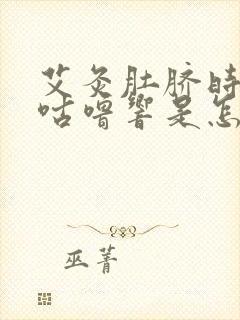 艾灸肚脐时
咕噜响是怎
巫菁